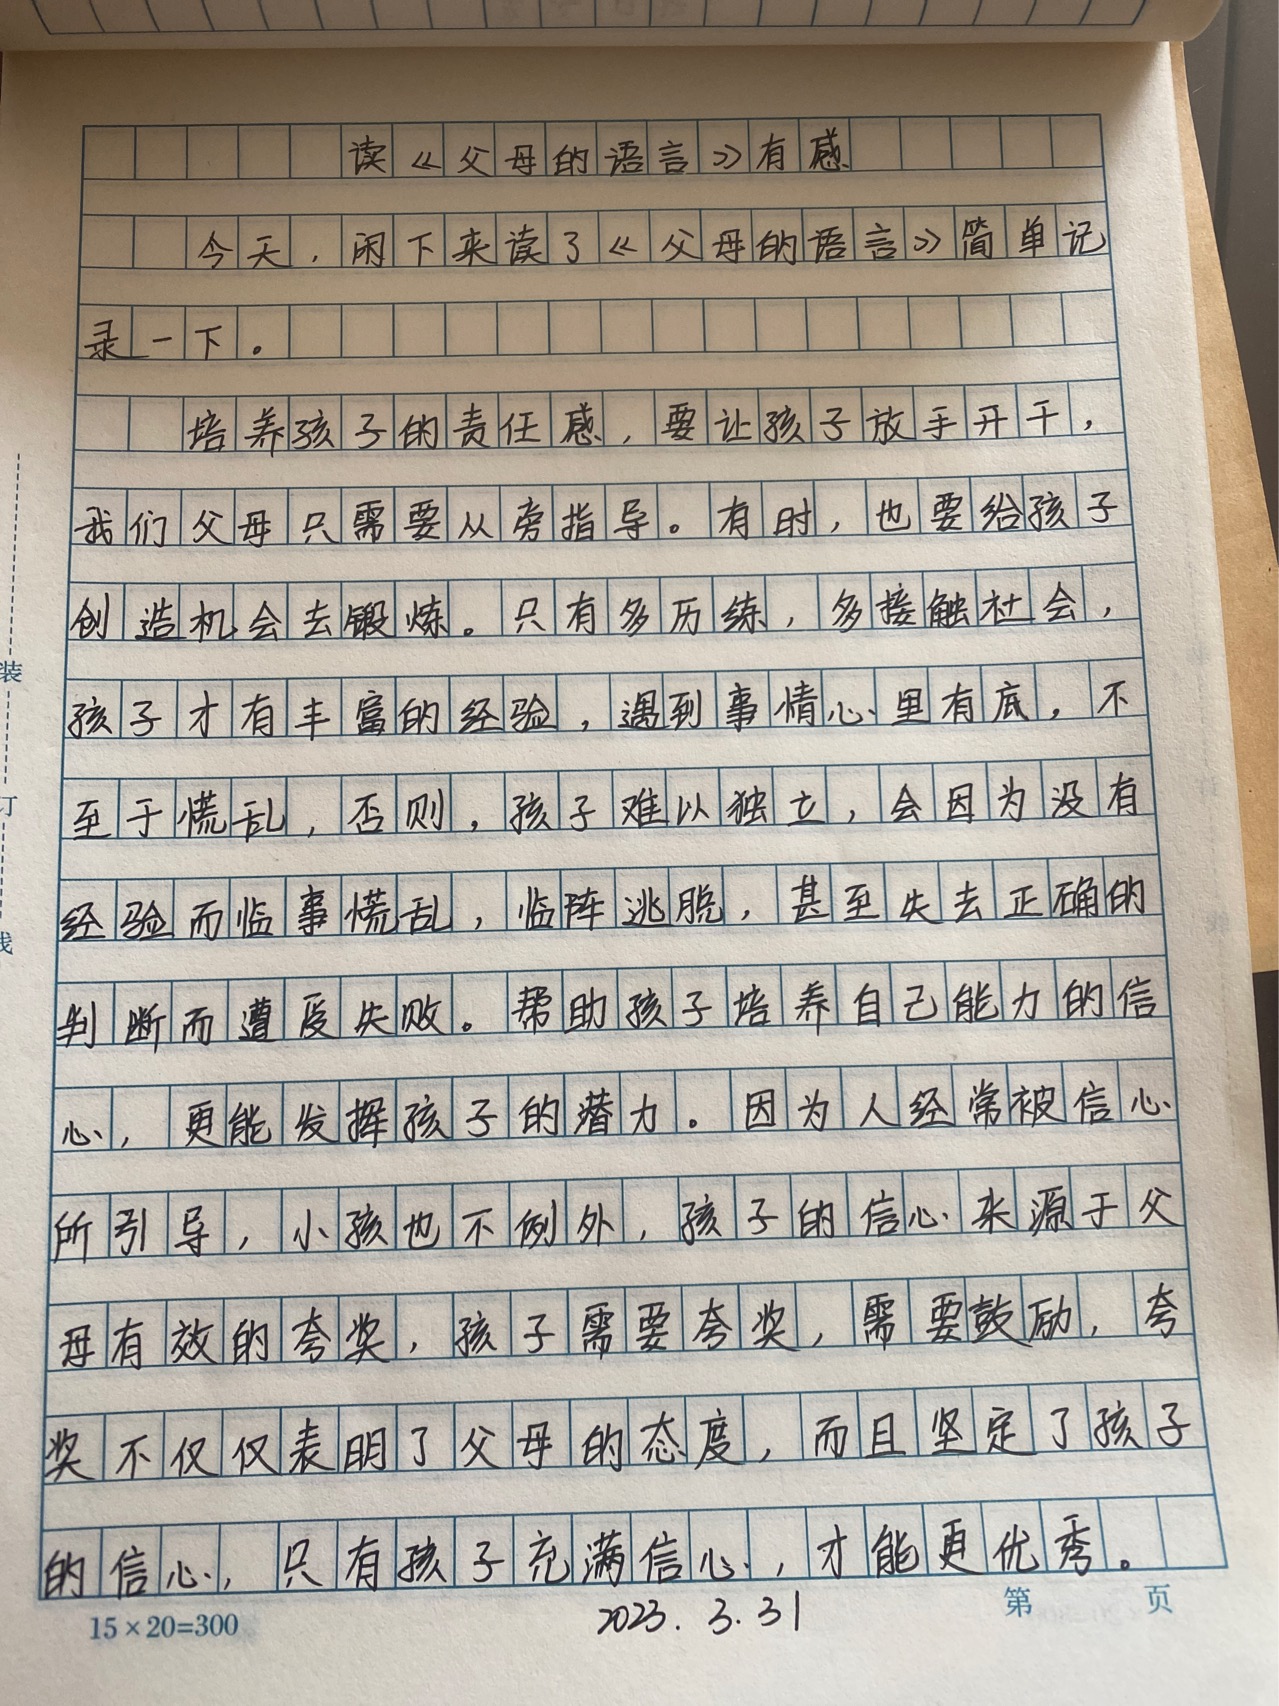 读《父母的语言》有感
今天，闲下来读了《父母的语言》简单记
录一下。
培养孩子的责任感，要让孩子放手开干，
我们父母只需要从旁指导。有时，也要给孩子
创造机会去锻炼。只有多历练，多接触社会，
孩子才有丰富的经验，遇到事情心里有底，不
至于慌乱，否则，孩子难以独立，会因为没有
经验而临事慌乱，临阵逃脱，甚至失去正确的
判断而遭受失败。帮助孩子培养自己能力的信
心，更能发挥孩子的潜力。因为人经常被信心
所引导，小孩也不例外，孩子的信心来源于父
母有效的夸奖，孩子需要夸奖，需要鼓励，夸
奖不仅仅表明了父母的态度，而且坚定了孩子
的信心，只有孩子充满信心，才能更优秀。
15×20=300
2023.3.31
第 页
装
订
线